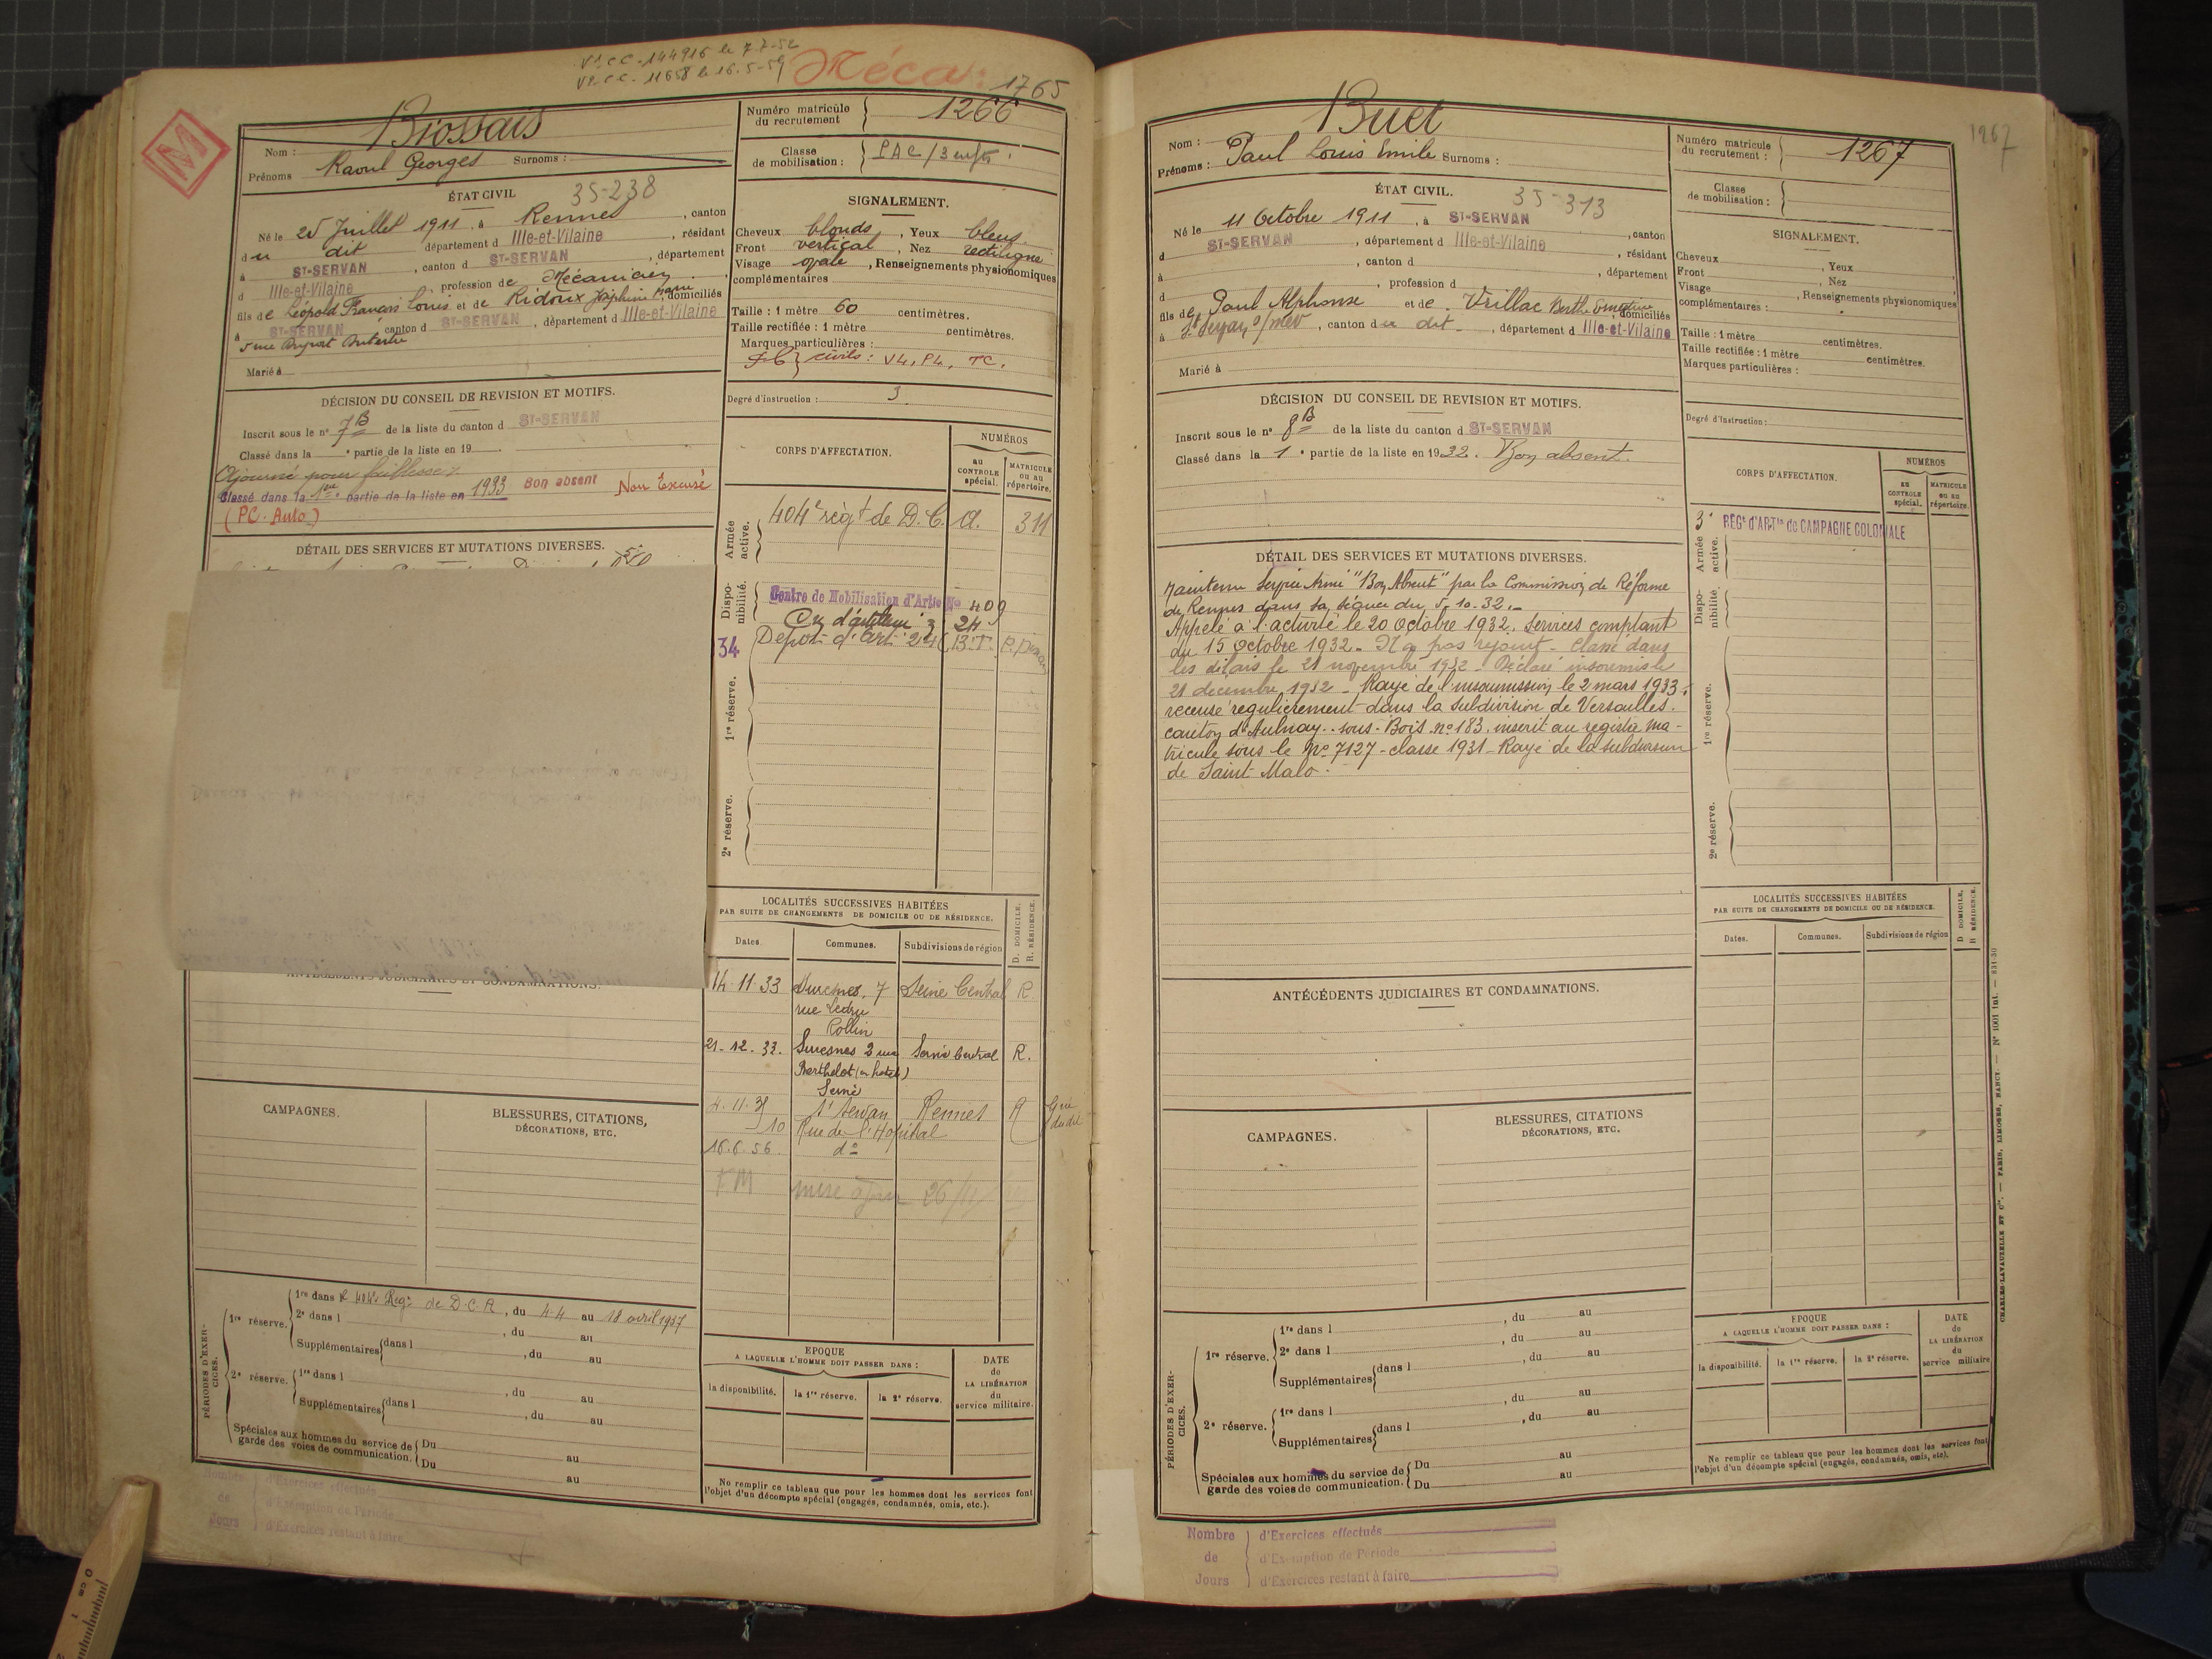 V1.CC-144916 le 7.7-52
V2.CC-11658 le 16.5-59
Méca: 1765
M
Nom : Biossais
Prénoms Raoul Georges Surnoms :
Numéro matricule du recrutement 1266
Classe de mobilisation :
ÉTAT CIVIL 35-238
Né le 25 Juillet 1911, à Rennes, canton
du dit département d Ille-et-Vilaine, résidant
à ST-SERVAN, canton d ST-SERVAN, département
d Ille-et-Vilaine profession de Mécanicien,
fils de Léopold Francis Louis et de Ridoux Joséphine Marie, domiciliés
à ST-SERVAN, canton d ST-SERVAN, département d Ille-et-Vilaine
5 rue
Marié à
SIGNALEMENT.
Cheveux blonds, Yeux bleus
Front vertical, Nez rectiligne
Visage ovale, Renseignements physionomiques
complémentaires
Taille : 1 mètre 60 centimètres.
Taille rectifiée : 1 mètre centimètres.
Marques particulières :
civils : VL, PL, TC.
Degré d'instruction : 3
DÉCISION DU CONSEIL DE REVISION ET MOTIFS.
Inscrit sous le n° 7B de la liste du canton d ST-SERVAN
Classé dans la e partie de la liste en 19
Ajourné pour faiblesse
Classé dans la 1ère partie de la liste en 1933 Bon absent Non Excusé
(PC. Auto)
DÉTAIL DES SERVICES ET MUTATIONS DIVERSES.
CORPS D'AFFECTATION.
NUMÉROS
AU CONTROLE spécial.
MATRICULE ou au répertoire.
Armée active.
404e régt de D.C.A. 311
Dispo-nibilité.
Centre de Mobilisation d'Artie N° 409
34 Dépôt d'Art.
1re réserve.
2e réserve.
LOCALITÉS SUCCESSIVES HABITÉES
PAR SUITE DE CHANGEMENTS DE DOMICILE OU DE RÉSIDENCE.
Dates. Communes. Subdivisions de région D. DOMICILE. R. RÉSIDENCE.
14.11.33 Suresnes, 7 Seine Central R.
rue Ledru
Rollin
21-12-33. Suresnes 2 rue Seine Central R.
Berthelot (en hotel)
Seine
St Servan Rennes R
10 Rue de l'Hopital
16.6.56. do
mise à jour 26/
ANTÉCÉDENTS JUDICIAIRES ET CONDAMNATIONS.
CAMPAGNES.
BLESSURES, CITATIONS,
DÉCORATIONS, ETC.
PÉRIODES D'EXERCICES.
1re réserve. 1re dans le 404e Regt de D.C.A, du 4-4 au 18 avril 1937
2e dans l , du au
Supplémentaires dans l , du au
2e réserve. 1re dans l , du au
Supplémentaires dans l , du au
Spéciales aux hommes du service de garde des voies de communication. Du au
Du au
EPOQUE
A LAQUELLE L'HOMME DOIT PASSER DANS :
la disponibilité. la 1re réserve. la 2e réserve.
DATE de LA LIBÉRATION du service militaire.
Ne remplir ce tableau que pour les hommes dont les services font
l'objet d'un décompte spécial (engagés, condamnés, omis, etc.).
Nombre de Jours
d'Exercices effectués
d'Exemption de Période
d'Exercices restant à faire
0 cm 1
1267
Nom : Buet
Prénoms : Paul Louis Emile Surnoms :
Numéro matricule du recrutement : 1267
Classe de mobilisation :
ÉTAT CIVIL. 35-313
Né le 11 Octobre 1911, à ST-SERVAN
d ST-SERVAN, département d Ille-et-Vilaine, canton
à , canton d , résidant
d , profession d , département
fils de Paul Alphonse et de Vrillac Berthe Ernestine domiciliés
à St Servan s/mer, canton du dit, département d Ille-et-Vilaine
Marié à
SIGNALEMENT.
Cheveux , Yeux
Front , Nez
Visage , Renseignements physionomiques
complémentaires :
Taille : 1 mètre centimètres.
Taille rectifiée : 1 mètre centimètres.
Marques particulières :
Degré d'instruction :
DÉCISION DU CONSEIL DE REVISION ET MOTIFS.
Inscrit sous le n° 8B de la liste du canton d ST-SERVAN
Classé dans la 1e partie de la liste en 1932. Bon absent.
DÉTAIL DES SERVICES ET MUTATIONS DIVERSES.
Maintenu Service Armé "Bon Absent" par la Commission de Réforme
de Rennes dans sa séance du 5.10.32.
Appelé à l'activité le 20 octobre 1932. Services comptant
du 15 octobre 1932. N'a pas rejoint. Classé dans
les délais le 21 novembre 1932. Déclaré insoumis le
21 décembre 1932. Rayé de l'insoumission le 2 mars 1933,
recensé régulièrement dans la subdivision de Versailles.
canton d'Aulnay-sous-Bois n° 183, inscrit au registre ma-
tricule sous le N° 7127 - classe 1931 - Rayé de la subdivision
de Saint Malo.
CORPS D'AFFECTATION.
NUMÉROS
AU CONTROLE spécial.
MATRICULE ou au répertoire.
Armée active.
3e RÉGt d'ARTie de CAMPAGNE COLONIALE
Dispo-nibilité.
1re réserve.
2e réserve.
LOCALITÉS SUCCESSIVES HABITÉES
PAR SUITE DE CHANGEMENTS DE DOMICILE OU DE RÉSIDENCE.
Dates. Communes. Subdivisions de région D. DOMICILE. R. RÉSIDENCE.
ANTÉCÉDENTS JUDICIAIRES ET CONDAMNATIONS.
CAMPAGNES.
BLESSURES, CITATIONS
DÉCORATIONS, ETC.
PÉRIODES D'EXERCICES.
1re réserve. 1re dans l , du au
2e dans l , du au
Supplémentaires dans l , du au
2e réserve. 1re dans l , du au
Supplémentaires dans l , du au
Spéciales aux hommes du service de garde des voies de communication. Du au
Du au
EPOQUE
A LAQUELLE L'HOMME DOIT PASSER DANS :
la disponibilité. la 1re réserve. la 2e réserve.
DATE de LA LIBÉRATION du service militaire
Ne remplir ce tableau que pour les hommes dont les services font
l'objet d'un décompte spécial (engagés, condamnés, omis, etc).
CHARLES-LAVAUZELLE ET Cie. — PARIS, LIMOGES, NANCY — N° 1001 int. — 831-30
Nombre de Jours
d'Exercices effectués
d'Exemption de Période
d'Exercices restant à faire